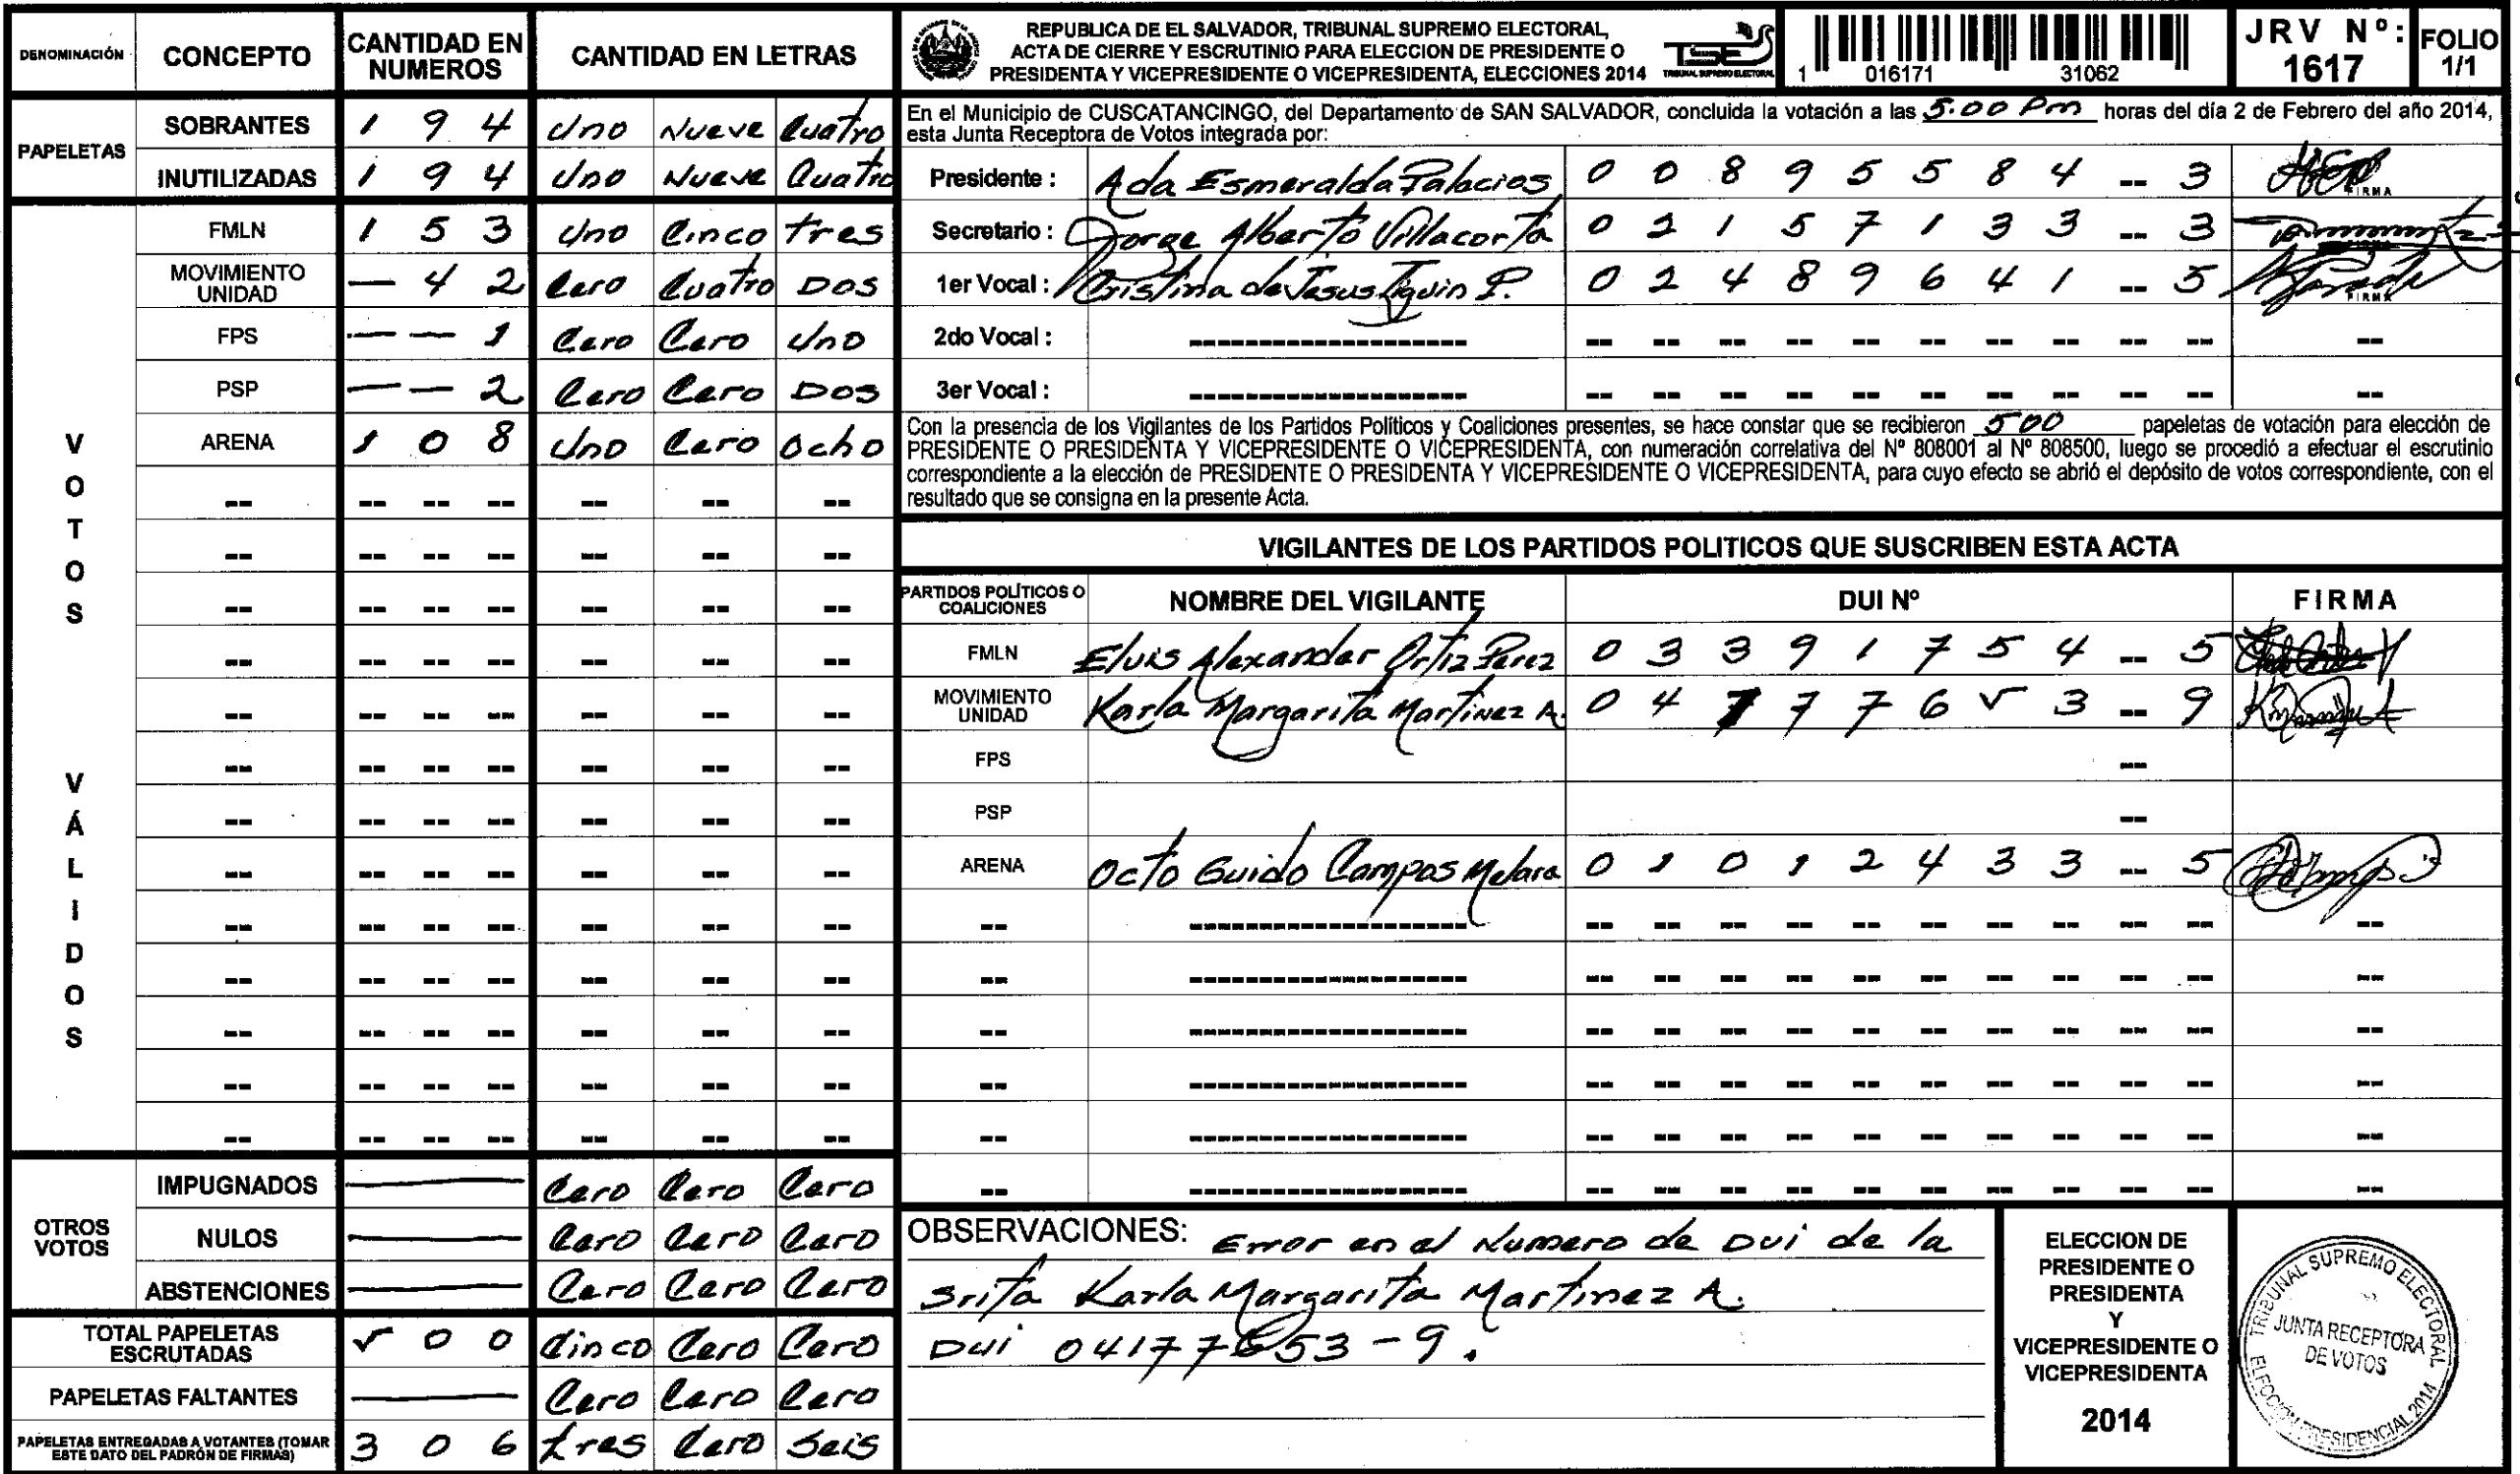 DENOMINACIÓN CONCEPTO CANTIDAD EN NUMEROS CANTIDAD EN LETRAS
PAPELETAS
SOBRANTES 1 9 4 Uno Nueve Cuatro
INUTILIZADAS 1 9 4 Uno Nueve Cuatro
VOTOS VÁLIDOS
FMLN 1 5 3 Uno Cinco tres
MOVIMIENTO UNIDAD — 4 2 Cero Cuatro Dos
FPS — — 1 Cero Cero Uno
PSP — — 2 Cero Cero Dos
ARENA 1 0 8 Uno Cero Ocho
OTROS VOTOS
IMPUGNADOS — Cero Cero Cero
NULOS — Cero Cero Cero
ABSTENCIONES — Cero Cero Cero
TOTAL PAPELETAS ESCRUTADAS 5 0 0 Cinco Cero Cero
PAPELETAS FALTANTES — Cero Cero Cero
PAPELETAS ENTREGADAS A VOTANTES (TOMAR ESTE DATO DEL PADRÓN DE FIRMAS) 3 0 6 tres Cero Seis
REPUBLICA DE EL SALVADOR, TRIBUNAL SUPREMO ELECTORAL,
ACTA DE CIERRE Y ESCRUTINIO PARA ELECCION DE PRESIDENTE O
PRESIDENTA Y VICEPRESIDENTE O VICEPRESIDENTA, ELECCIONES 2014
TSE
TRIBUNAL SUPREMO ELECTORAL
1 016171 31062
JRV Nº: 1617
FOLIO 1/1
En el Municipio de CUSCATANCINGO, del Departamento de SAN SALVADOR, concluida la votación a las 5:00 Pm horas del día 2 de Febrero del año 2014,
esta Junta Receptora de Votos integrada por:
Presidente : Ada Esmeralda Palacios 0 0 8 9 5 5 8 4 -- 3 FIRMA
Secretario : Jorge Alberto Villacorta 0 2 1 5 7 1 3 3 -- 3
1er Vocal : Cristina de Jesus P. 0 2 4 8 9 6 4 1 -- 5 FIRMA
2do Vocal :
3er Vocal :
Con la presencia de los Vigilantes de los Partidos Políticos y Coaliciones presentes, se hace constar que se recibieron 500 papeletas de votación para elección de
PRESIDENTE O PRESIDENTA Y VICEPRESIDENTE O VICEPRESIDENTA, con numeración correlativa del Nº 808001 al Nº 808500, luego se procedió a efectuar el escrutinio
correspondiente a la elección de PRESIDENTE O PRESIDENTA Y VICEPRESIDENTE O VICEPRESIDENTA, para cuyo efecto se abrió el depósito de votos correspondiente, con el
resultado que se consigna en la presente Acta.
VIGILANTES DE LOS PARTIDOS POLITICOS QUE SUSCRIBEN ESTA ACTA
PARTIDOS POLÍTICOS O COALICIONES NOMBRE DEL VIGILANTE DUI Nº FIRMA
FMLN Elvis Alexander Ortiz Perez 0 3 3 9 1 7 5 4 -- 5
MOVIMIENTO UNIDAD Karla Margarita Martinez A. 0 4 7 7 7 6 5 3 -- 9
FPS --
PSP --
ARENA Octo Guido Campos Melara 0 1 0 1 2 4 3 3 -- 5
OBSERVACIONES: Error en el Numero de Dui de la
Srita Karla Margarita Martinez A.
Dui 04177653-9.
ELECCION DE
PRESIDENTE O
PRESIDENTA
Y
VICEPRESIDENTE O
VICEPRESIDENTA
2014
TRIBUNAL SUPREMO ELECTORAL
JUNTA RECEPTORA
DE VOTOS
ELECCIÓN PRESIDENCIAL 2014